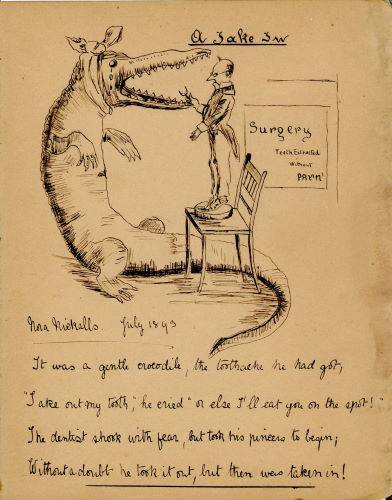 A Take In
Surgery
Teeth Extracted
Without
PAYN!
Nora Nickalls. July 1893
It was a gentle crocodile, the toothache he had got,
"Take out my tooth," he cried "or else I'll eat you on the spot!"
The dentist shook with fear, but took his pincers to begin;
Without a doubt he took it out, but then was taken in!